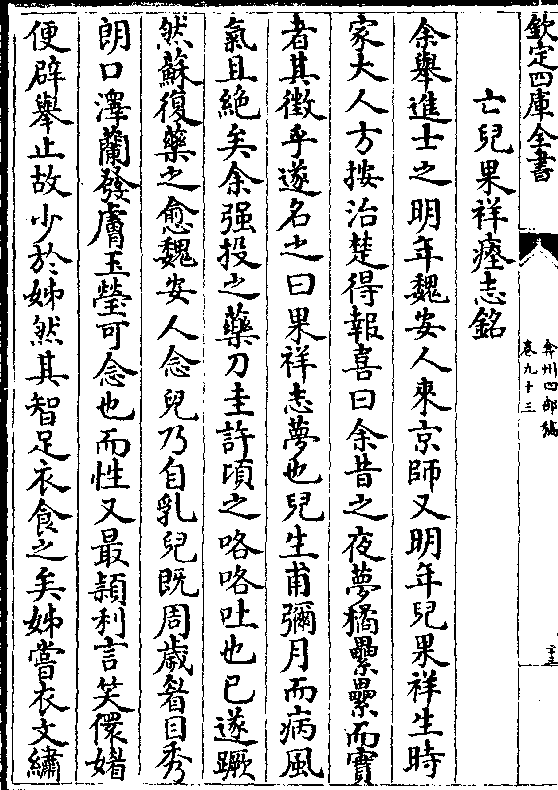 欽定四庫全書
弇州四部稿
卷九十三
亡兒果祥瘞志銘
余舉進士之明年魏安人來京師又明年兒果祥生時
家大人方按治楚得報喜曰余昔之夜夢橘纍纍而實
者其徵乎遂名之曰果祥志夢也兒生甫彌月而病風
氣且絕矣余强投之藥刀圭許頃之咯咯吐也已遂蹶
然蘇復藥之愈魏安人念兒乃自乳兒既周歲眉目秀
朗口澤蘭發膚玉瑩可念也而性又最頴利言笑儇媘
便辟舉止故少於姊然其智足衣食之矣姊嘗衣文繡